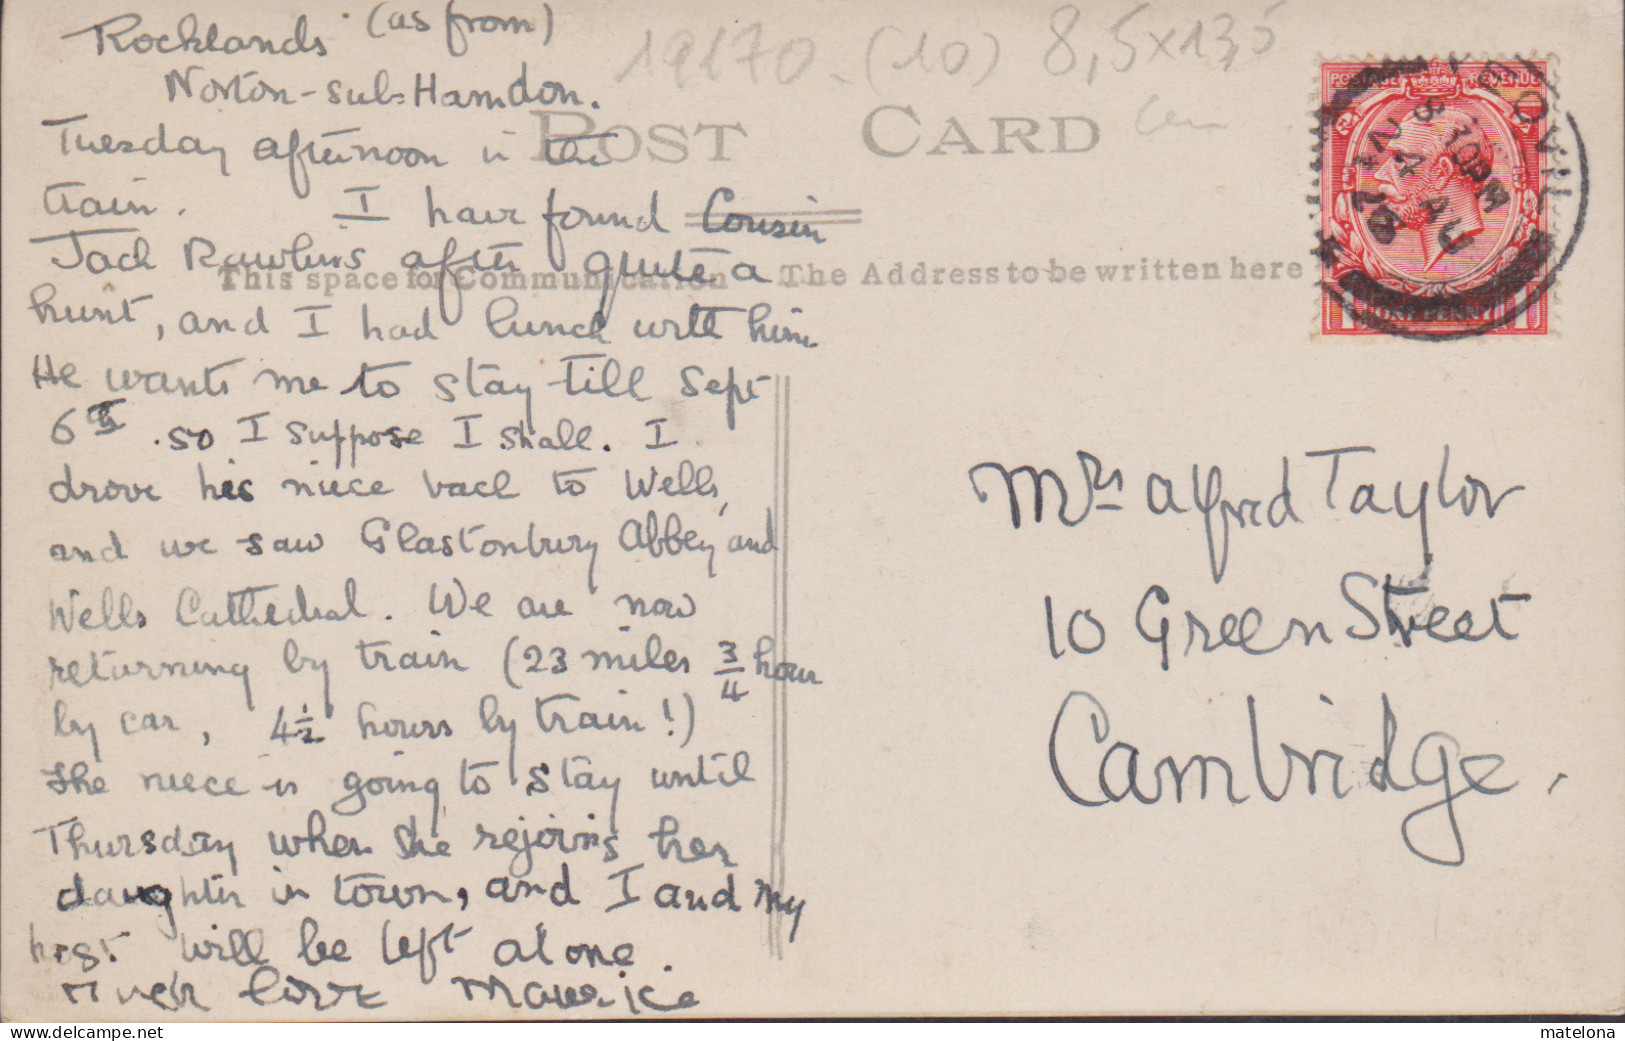 Rocklands (as from)
Norton-sub-Hamdon.
19170 - (10) 8,5x13,5
POST CARD
Tuesday afternoon in the
train. I have found Cousin
Jack Rawlins after quite a
This space for Communication The Address to be written here
hunt, and I had lunch with him
He wants me to stay till Sept
6th. so I suppose I shall. I
drove his niece back to Wells,
and we saw Glastonbury Abbey and
Wells Cathedral. We are now
returning by train (23 miles 3/4 hour
by car, 4 1/2 hours by train!)
The niece is going to stay until
Thursday when she rejoins her
daughter in town, and I and my
host will be left alone.
Much love Maurice
POSTAGE REVENUE
YEOVIL
8 30PM
4 AU
ONE PENNY
Mrs Alfred Taylor
10 Green Street
Cambridge.
matelona